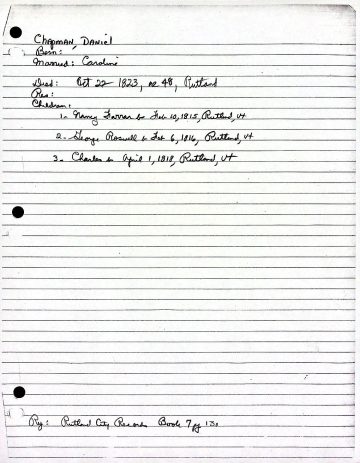 CHAPMAN, DANIEL
Born:
Married: Caroline
Died: Oct 22 1823, ae 48, Rutland
Res:
Children:
1. Nancy Farrar b Feb 10, 1815, Rutland, Vt
2. George Roswell b Feb 6, 1816, Rutland, Vt
3. Charles b April 1, 1818, Rutland, Vt
Rutland City Records Book 7 pg